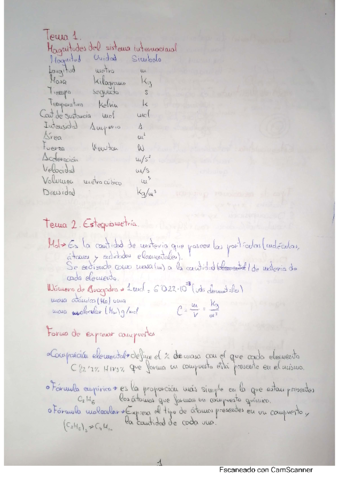 Tema 1.
Magnitudes del sistema internacional
Magnitud Unidad Simbolo
Longitud metro m
Masa Kilogramo Kg
Tiempo segundo s
Temperatura Kelvin k
Cant de sustancia mol mol
Intensidad Amperio A
Área m²
Fuerza Newton N
Aceleración m/s²
Velocidad m/s
Volumen metro cúbico m³
Densidad Kg/m³
Tema 2. Estequiometría
Mol → Es la cantidad de materia que poseen las partículas (moléculas,
átomos y entidades elementales).
Se entiende como masa (m) a la cantidad de materia de
cada elemento.
Número de Avogadro → 1 mol, 6'022·10²³ (ude elementales)
masa atómica (Ma) uma
masa molecular (Mm) g/mol
Forma de expresar compuestos
Composición elemental → define el % de masa con el que cada elemento
que forma un compuesto está presente en el mismo.
Fórmula empírica → es la proporción más simple en la que están presentes
los átomos que forman un compuesto químico.
Fórmula molecular → Expresa el tipo de átomos presentes en un compuesto y
la cantidad de cada uno.
1
Escaneado con CamScanner